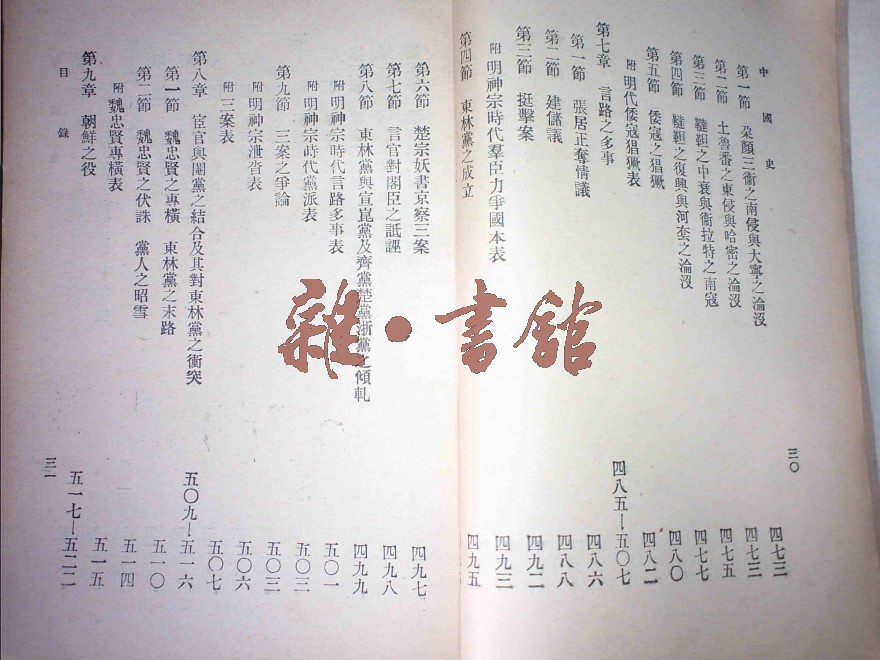 中國史
三〇
第一節 朶顏三衞之南侵與大寧之淪沒 四七三
第二節 土魯番之東侵與哈密之淪沒 四七三
第三節 韃靼之中衰與衞拉特之南寇 四七五
第四節 韃靼之復興與河套之淪沒 四七七
第五節 倭寇之猖獗 四八〇
附 明代倭寇猖獗表 四八二
第七章 言路之多事 四八五—五〇七
第一節 張居正奪情議 四八六
第二節 建儲議 四八八
第三節 挺擊案 四九二
附 明神宗時代羣臣力爭國本表 四九三
第四節 東林黨之成立 四九五
第六節 楚宗妖書京察三案 四九七
第七節 言官對閣臣之詆諲 四九八
第八節 東林黨與宣崑黨及齊黨楚黨浙黨之傾軋 四九九
附 明神宗時代言路多事表 五〇一
附 明神宗時代黨派表 五〇三
第九節 三案之爭論 五〇三
附 明神宗泄沓表 五〇六
附 三案表 五〇七
第八章 宦官與閹黨之結合及其對東林黨之衝突 五〇九—五一六
第一節 魏忠賢之專橫 東林黨之末路 五一〇
第二節 魏忠賢之伏誅 黨人之昭雪 五一四
附 魏忠賢專橫表 五一五
第九章 朝鮮之役 五一七—五二二
目錄
三一
雜·書館